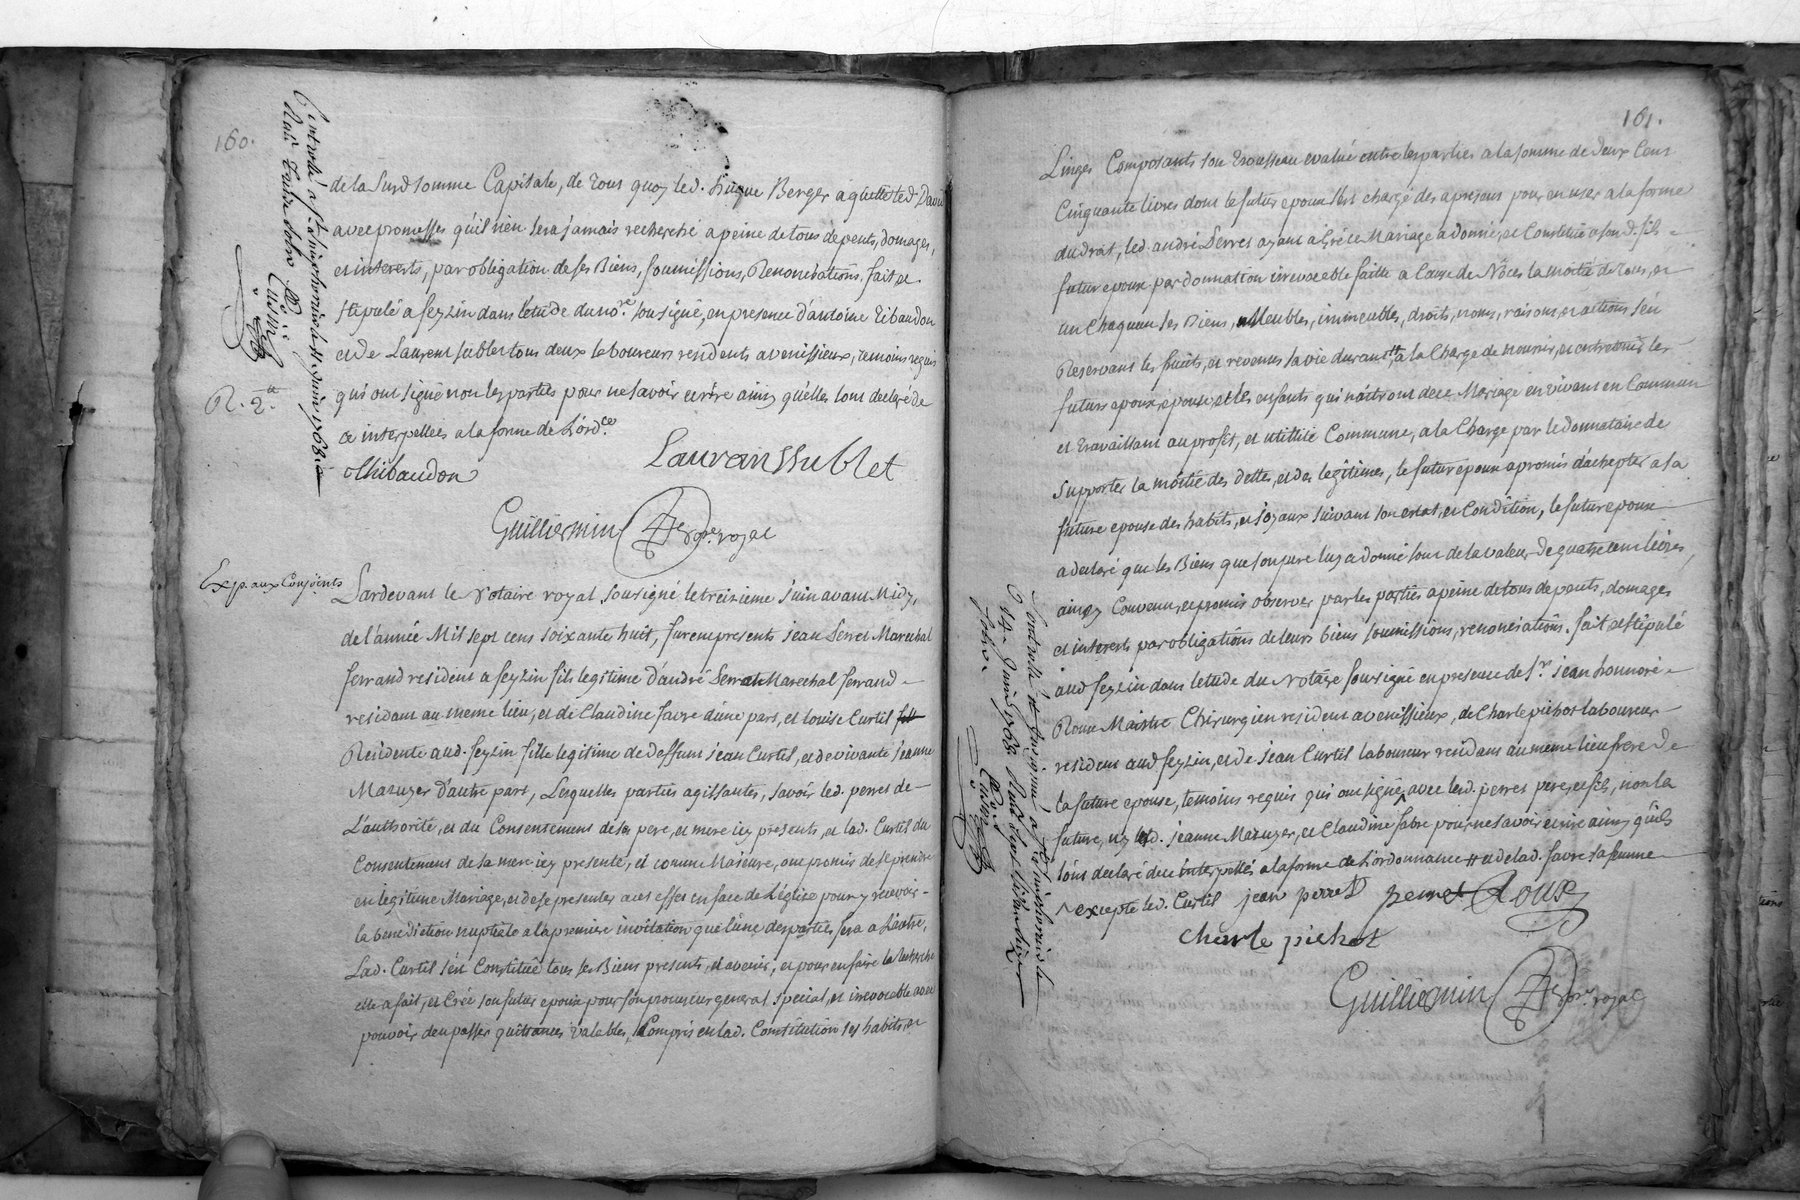 160.
de la susd somme Capitale, de tous quoy led. hugue Berger a quitté led David
avec promesses qu'il n'en sera jamais recherché a peine de tous depents, domages,
et interests, par obligation de ses Biens, soumissions, Renonciations. fait et
stipulé a feyzin dans l'etude du no.re sousigné, en presence d'antoine Tibaudon
et de Laurent sublet tous deux laboureurs residents a venissieux, temoins requis
qui ont signé non les parties pour ne savoir ecrire ainsy qu'elles l'ont declaré de
ce interpellees a la forme de L'ord.ce
Lauran Sublet
Guilliermin No.re royal
R. 2.
Controllé a St simphorien le 11 juin 1768
Exp. aux Conjoints
Pardevant le Notaire royal sousigné le treizieme juin avant Midy,
de l'année Mil sept cens soixante huit, furent presents jean Perret Marechal
ferrand resident a feyzin fils legitime d'andré Perret Marechal ferrand
residant au meme lieu, et de Claudine favre d'une part, et Louise Curtil
Residente aud. feyzin fille legitime de deffunt jean Curtil, et de vivante jeanne
Mazuyer d'autre part, Lesquelles parties agissantes, savoir led. perret de
L'authorité, et du Consentement de ses pere, et mere icy presents, et lad. Curtil du
Consentement de sa mere icy presente, et comme Majeure, ont promis de se prendre
en legitime Mariage, et de se presenter a cet effet en face de L'eglise pour y recevoir
la benediction nuptiale a la premiere invitation que l'une des parties fera a L'autre,
Lad. Curtil s'en Constitue tous ses Biens presents, et avenir, et pour en faire la recherche
elle a fait, et Crée son futur epoux pour son procureur general special, et irrevocable avec
pouvoir d'en passer quittances valables, Compris en lad. Constitution ses habits, et
161.
Linges Composants son trousseau evalué entre les parties a la somme de deux Cens
Cinquante livres dont le futur epoux s'est chargé des apresent pour en user a la forme
du droit, led. andré Perret ayant a Gré ce Mariage a donné, et Constitué a son d. fils
futur epoux par donnation irrevocable faitte a Cause de Nôces la moitié de tous, et
un Chaquun ses Biens, Meubles, immeubles, droits, noms, raisons, et actions s'en
Reservant les fruits, et revenus sa vie durant, a la Charge de nourrir, et entretenir les
futurs epoux, epouse et les enfants qui naitront de ce Mariage en vivant en Commun
et travaillant au profit, et utilité Commune, a la Charge par le donnataire de
supporter la moitié des dettes, et des legitimes, le futur epoux a promis d'achepter a la
future epouse des habits, et joyaux suivant son estat, et Condition, le futur epoux
a declaré que les Biens que son pere luy a donné sont de la valeur de quatre cent livres,
ainsy Convenu, et promis observer par les parties a peine de tous depents, domages
et interests par obligations de leurs biens soumissions, renonciations. fait et stipulé
aud feyzin dans l'etude du Notaire sousigné en presence de S.r jean honnoré
Roux Maitre Chirurgien resident a venissieux, de Charle pichot laboureur
resident aud feyzin, et de jean Curtil laboureur residant au meme lieu frere de
la future epouse, temoins requis qui ont signé ^ avec led. perret pere, et fils, non la
future, ny lad. jeanne Mazuyer, et Claudine fabre pour ne savoir ecrire ainsy qu'ils
l'ont declaré de ce interpellés a la forme de L'ordonnance # et de lad. favre sa femme
^ excepté led. Curtil jean perret perret Roux
Charle pichot
Guilliermin No.re royal